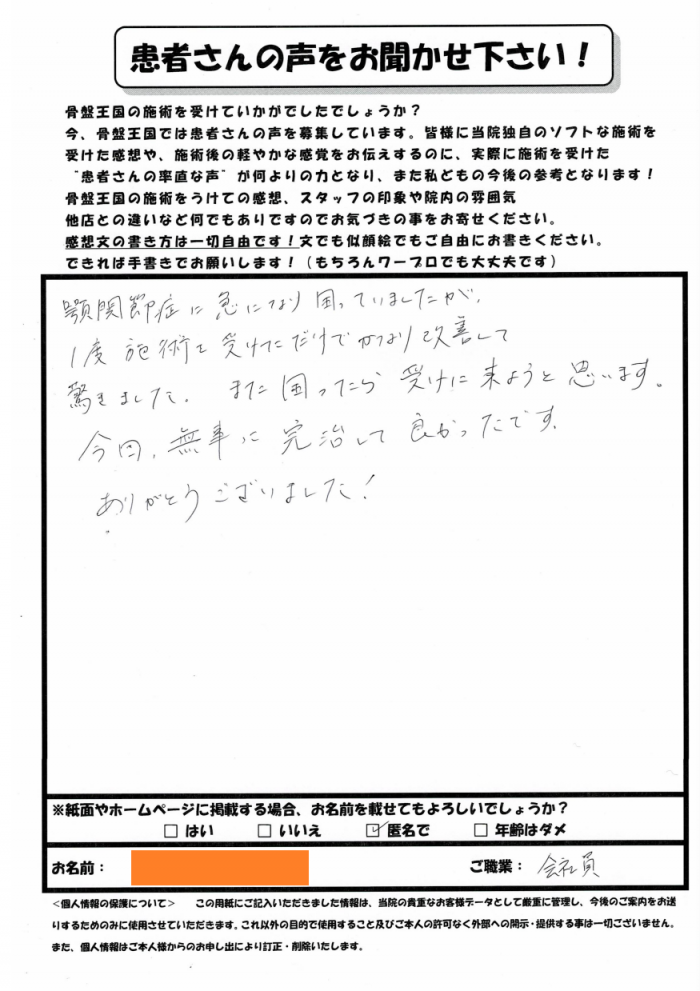 患者さんの声をお聞かせ下さい！
骨盤王国の施術を受けていかがでしたでしょうか？
今、骨盤王国では患者さんの声を募集しています。皆様に当院独自のソフトな施術を
受けた感想や、施術後の軽やかな感覚をお伝えするのに、実際に施術を受けた
"患者さんの率直な声"が何よりの力となり、また私どもの今後の参考となります！
骨盤王国の施術をうけての感想、スタッフの印象や院内の雰囲気
他店との違いなど何でもありですのでお気づきの事をお寄せください。
感想文の書き方は一切自由です！文でも似顔絵でもご自由にお書きください。
できれば手書きでお願いします！（もちろんワープロでも大丈夫です）
顎関節症に急になり困っていましたが、
1度施術を受けただけでかなり改善して
驚きました。また困ったら受けに来ようと思います。
今回、無事に完治して良かったです。
ありがとうございました！
※紙面やホームページに掲載する場合、お名前を載せてもよろしいでしょうか？
□ はい □ いいえ ☑ 匿名で □ 年齢はダメ
お名前： ご職業：会社員
＜個人情報の保護について＞ この用紙にご記入いただきました情報は、当院の貴重なお客様データとして厳重に管理し、今後のご案内をお送
りするためのみに使用させていただきます。これ以外の目的で使用すること及びご本人の許可なく外部への開示・提供する事は一切ございません。
また、個人情報はご本人様からのお申し出により訂正・削除いたします。